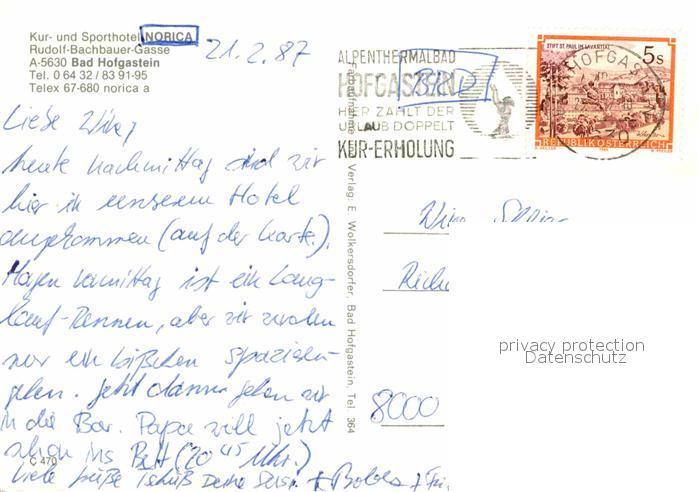 Kur- und Sporthotel NORICA
Rudolf-Bachbauer-Gasse
A-5630 Bad Hofgastein
Tel. 0 64 32 / 83 91-95
Telex 67-680 norica a
21.2.87
Liebe
heute nachmittag sind wir
hier in unserem Hotel
angekommen (auf der Karte).
Morgen vormittag ist ein Lang-
lauf-Rennen, aber wir werden
nur ein bißchen spazieren-
gehen. Jetzt dann gehen wir
in die Bar. Papa will jetzt
schon ins Bett (20 45 Uhr.)
Viele Grüße Tschüß Deine
C 470
Farbaufnahme und Verlag: E. Wolkersdorfer, Bad Hofgastein, Tel. 364
ALPENTHERMALBAD
HOFGASTEIN
HIER ZÄHLT DER
URLAUB DOPPELT
KUR-ERHOLUNG
BRD
STIFT ST. PAUL IM LAVANTTAL
5s
REPUBLIK ÖSTERREICH
8000
privacy protection
Datenschutz